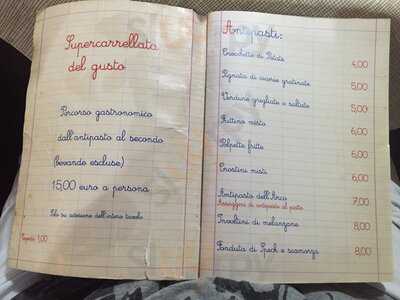 Supercarrellata
del gusto
Percorso gastronomico
dall'antipasto al secondo
(bevande escluse)
15,00 euro a persona
Solo su adesione dell'intero tavolo
Coperto 1,00
Antipasti:
Crocchette di Patate 4,00
Pignata di cozze gratinate 5,00
Verdure grigliate e saltate 5,00
Frittino misto 6,00
Polpette fritte 6,00
Crostini misti 6,00
Antipasto dell'Arco 7,00
Assaggini di antipasto al piatto
Involtini di melanzane 8,00
Fonduta di Speck e scamorza 8,00